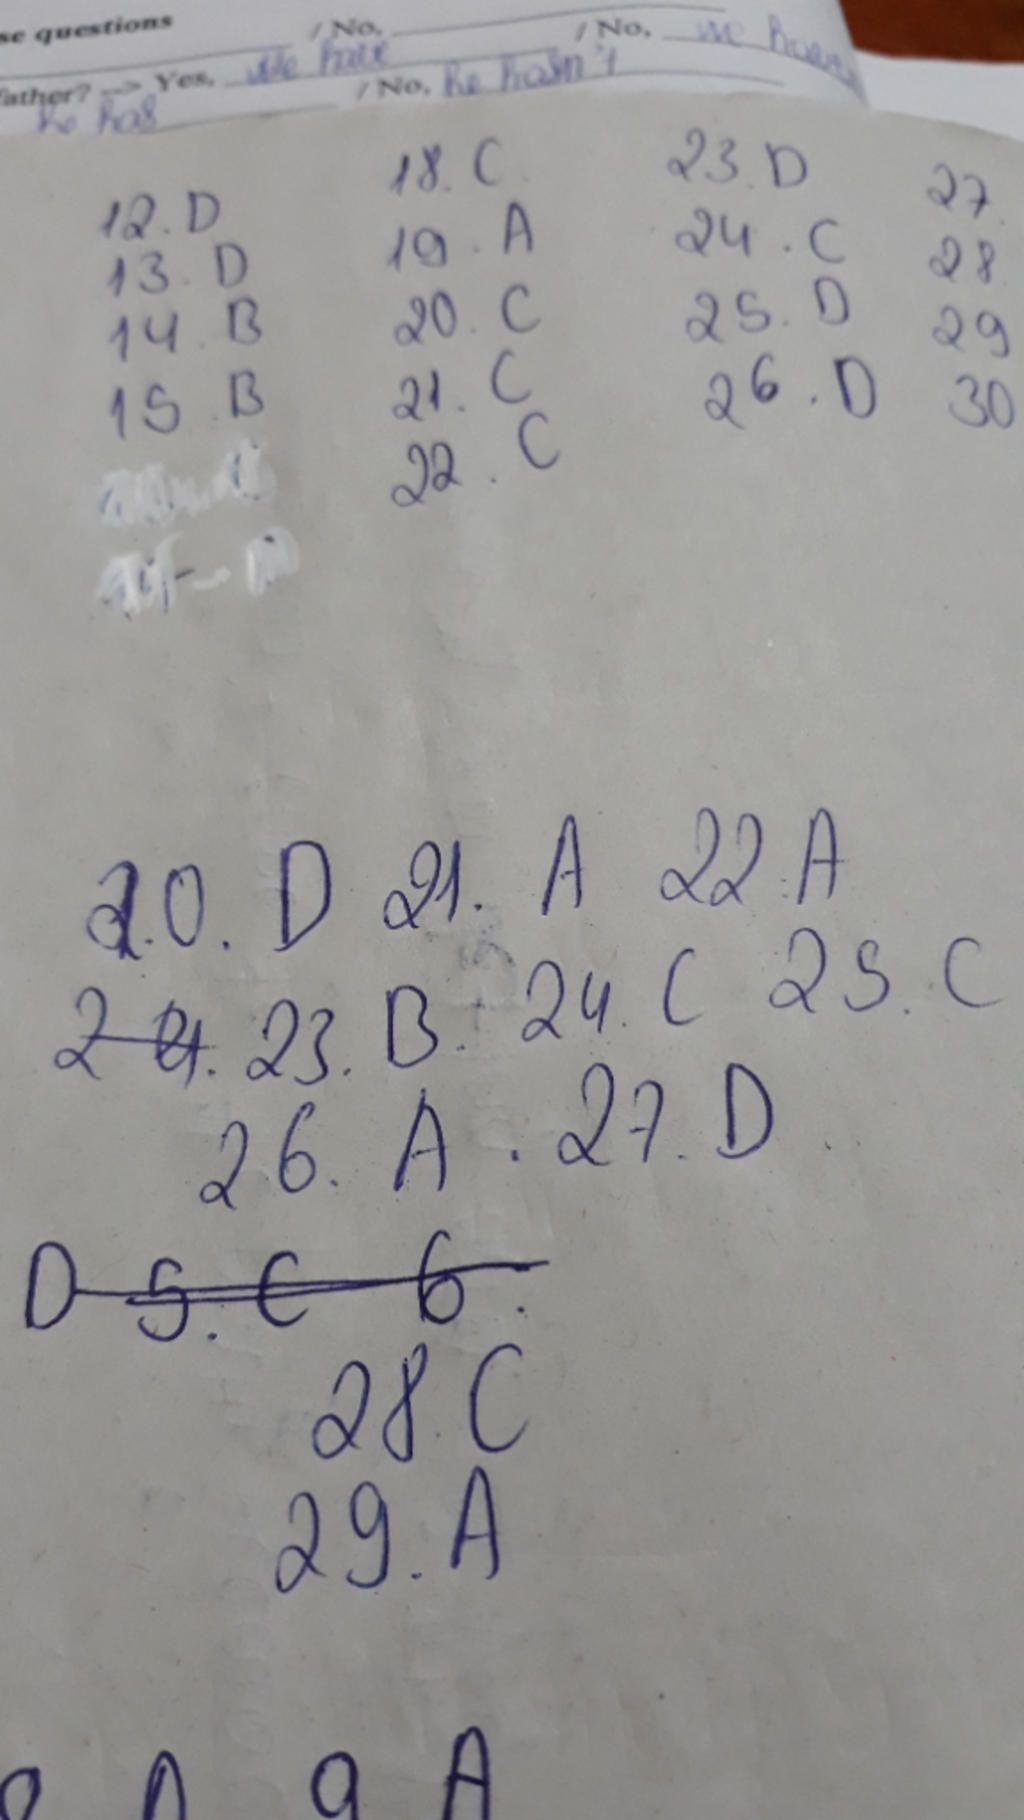 se questions
/ No,
/ No, we haven
father? → Yes, we have / No, he hasn't
he has
12. D 18. C 23. D 27.
13. D 19. A 24. C 28
14. B 20. C 25. D 29
15. B 21. C 26. D 30
22. C
20. D 21. A 22. A
2 23. B. 24. C 25. C
26. A. 27. D
D 5. C 6.
28. C
29. A
9 A